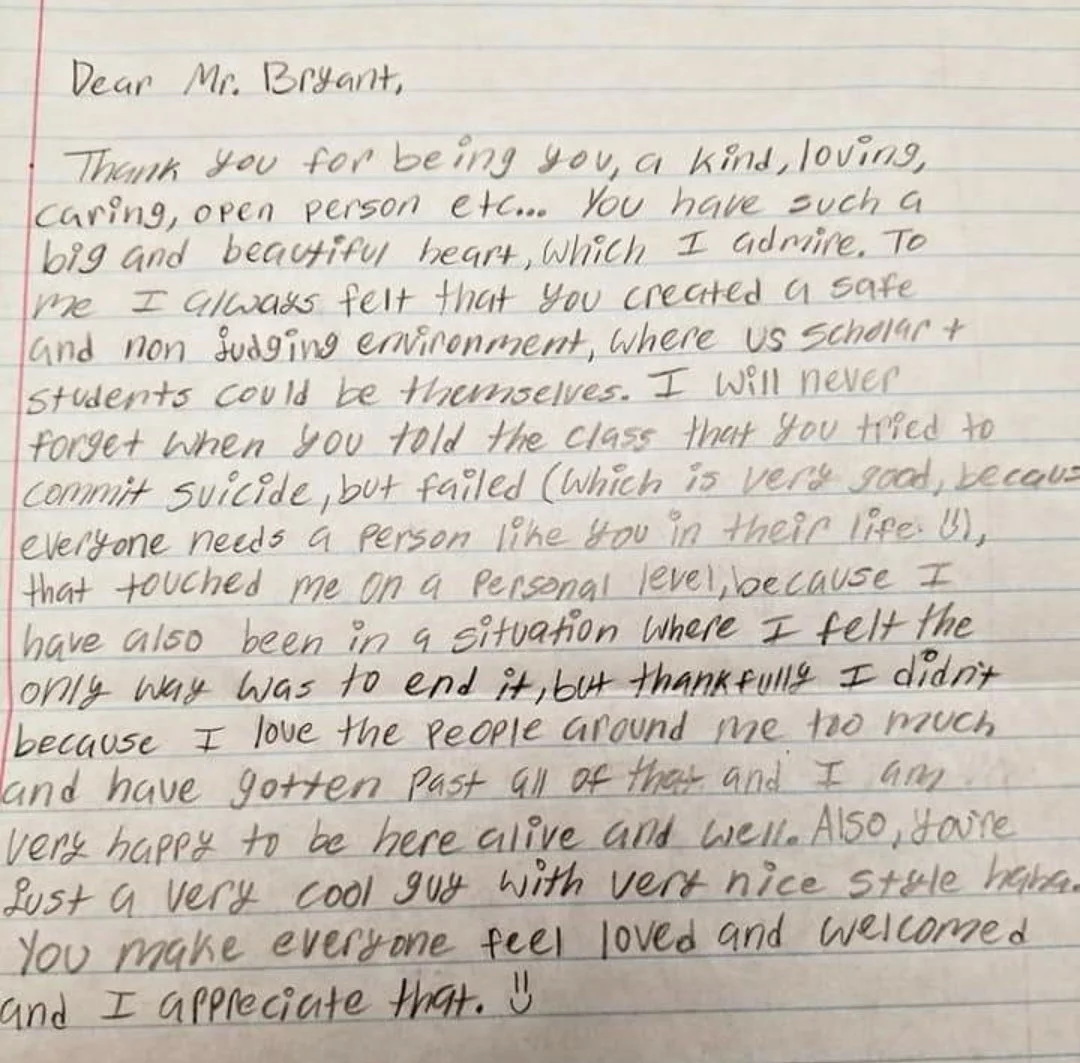 Dear Mr. Bryant,
Thank you for being you, a kind, loving,
caring, open person etc... You have such a
big and beautiful heart, which I admire. To
me I always felt that you created a safe
and non judging environment, where us scholar +
students could be themselves. I will never
forget when you told the class that you tried to
commit suicide, but failed (which is very good, becaus
everyone needs a person like you in their life. :)),
that touched me on a personal level, because I
have also been in a situation where I felt the
only way was to end it, but thankfully I didn't
because I love the people around me too much
and have gotten past all of that and I am
very happy to be here alive and well. Also, you're
just a very cool guy with very nice style haha.
You make everyone feel loved and welcomed
and I appreciate that. :)